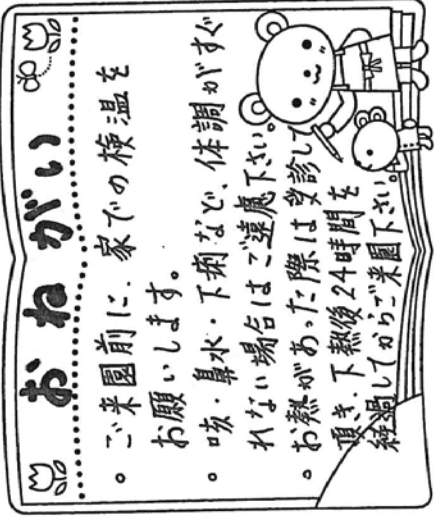 おねがい
。ご来園前に、家での検温を
お願いします。
。咳・鼻水・下痢など、体調がすぐ
れない場合はご遠慮下さい。
。お熱があった際は受診して
頂き、下熱後24時間を
経過してからご来園下さい。